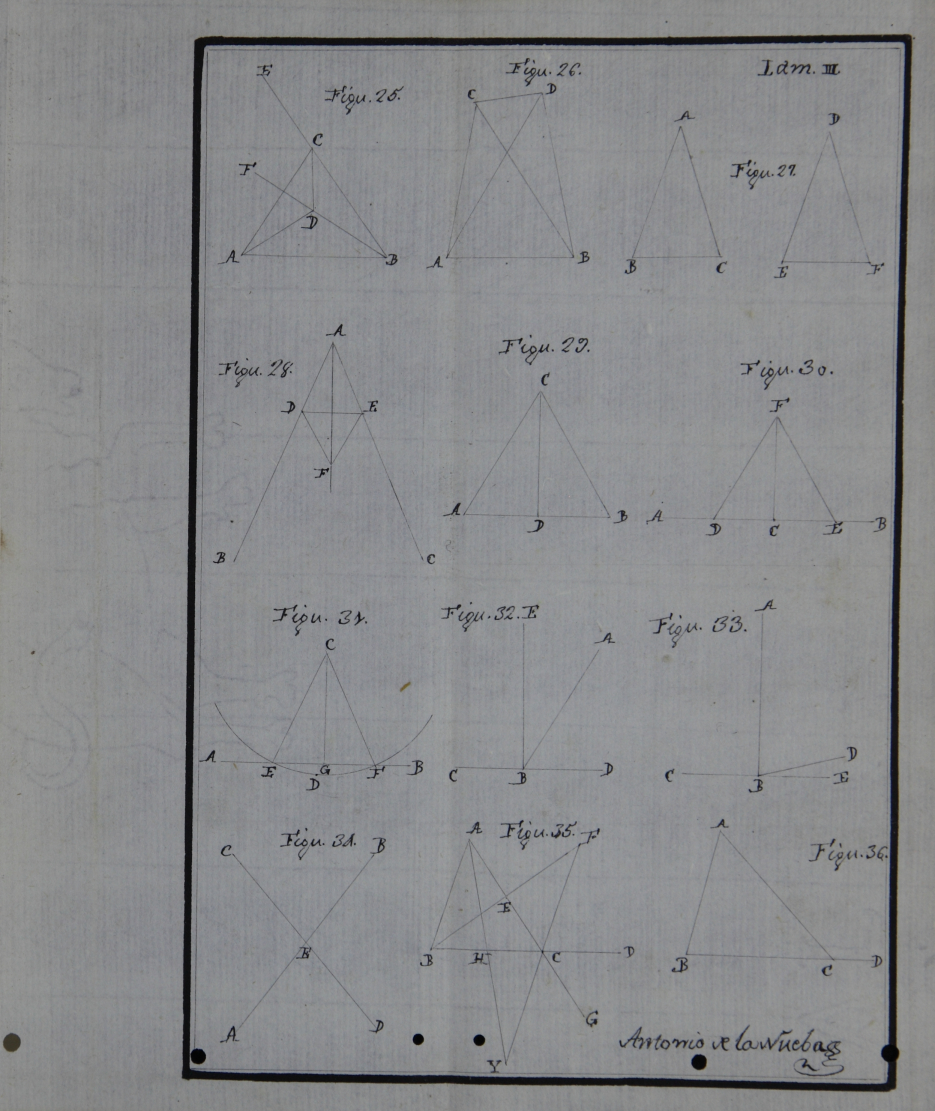 Lam. III
Figu. 25.
E
C
F
D
A
B
Figu. 26.
C
D
A
B
Figu. 27.
A
B
C
D
E
F
Figu. 28.
A
D
E
F
B
C
Figu. 29.
C
A
D
B
Figu. 30.
F
A
D
C
E
B
Figu. 31.
C
A
E
G
F
B
D
Figu. 32.
E
A
C
B
D
Figu. 33.
A
C
B
D
E
Figu. 34.
C
B
E
A
D
Figu. 35.
A
F
E
B
H
C
D
G
Y
Figu. 36.
A
B
C
D
Antonio de la